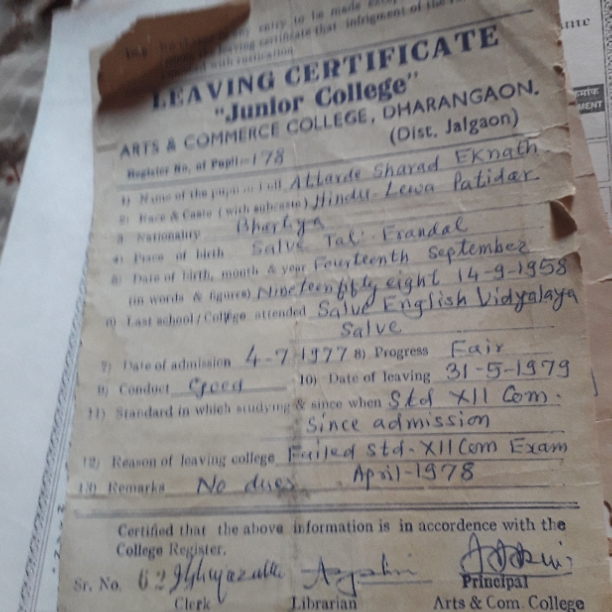 entry to be made
leaving certificate that infrigment of the
with rustication
LEAVING CERTIFICATE
"Junior College"
ARTS & COMMERCE COLLEGE, DHARANGAON.
(Dist. Jalgaon)
Register No. of Pupil-178
1) Name of the pupil in full Attarde Sharad Eknath
2) Race & Caste (with subcaste) Hindu-Lewa Patidar
3 Nationality Bhartiya
4) Place of birth Salve Tal. Erandal
5) Date of birth, month & year Fourteenth September
(in words & figures) Nineteen fifty eight 14-9-1958
6) Last school/College attended Salve English Vidyalaya
Salve
7) Date of admission 4-7-1977 8) Progress Fair
9) Conduct Good 10) Date of leaving 31-5-1979
11) Standard in which studying & since when Std XII Com.
Since admission
12) Reason of leaving college Failed Std-XII Com Exam
April-1978
13) Remarks No dues
Certified that the above information is in accordance with the
College Register.
Sr. No. 62
Clerk Librarian Principal
Arts & Com. College
क्रमांक
MENT